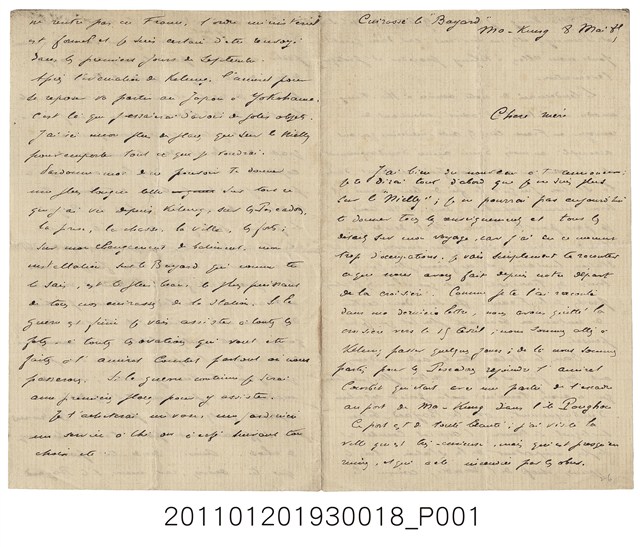 Cuirassé le "Bayard"
Ma-Kung 8 Mai 85
Chère mère
J'ai bien du nouveau à t'annoncer.
Je te dirai tout d'abord que je ne suis plus
sur le "Nielly"; je ne pourrai pas aujourd'hui
te donner tous les renseignements et tous les
détails sur mon voyage, car j'ai en ce moment
trop d'occupations, je vais simplement te raconter
ce que nous avons fait depuis notre départ
de la croisière. Comme je te l'ai raconté
dans ma dernière lettre, nous avons quitté la
croisière vers le 15 Avril; nous sommes allés à
Kelung passer quelques jours; de là nous sommes
partis pour les Pescadores rejoindre l'amiral
Courbet qui était avec une partie de l'escadre
au port de Ma-Kung dans l'île Ponghou
Ce port est de toute beauté; j'ai visité la
ville qui est très curieuse, mais qui est presque en
ruines, et qui a été incendiée par les obus.
ne rentre pas en France, l'ordre ministériel
est formel et je suis certain d'être renvoyé
dans les premiers jours de Septembre.
Après l'évacuation de Kelung, l'amiral pour
se reposer va partir au Japon à Yokohama.
C'est là que j'essaierai d'avoir de jolis objets.
J'ai ici moins plus de place que sur le Nielly
pour emporter tout ce que je voudrai.
Pardonne-moi de ne pouvoir te donner
une plus longue lettre sur tout ce
que j'ai vu depuis Kelung, sur les Pescadores,
la prise, la chasse, la ville, les forts;
sur mon changement de bâtiment, mon
installation sur le Bayard qui comme tu
le sais, est le plus beau, le plus puissant
de tous nos cuirassés de la station. Si la
guerre est finie je vais assister à toutes les
fêtes, à toutes les ovations qui vont être
faites à l'amiral Courbet partout où nous
passerons. Si la guerre continue je serai
aux premières places pour y assister.
Je t'achèterai un vase, une jardinière
un service à thé ou à café suivant ton
choix etc.
201101201930018_P001